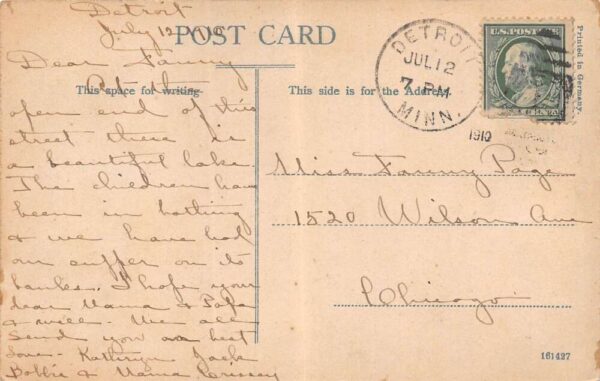 Detroit
July 12 - 1910
POST CARD
Dear Fanny
At the
open end of this
street there is
a beautiful lake.
The children have
been in bathing
& we have had
our supper on its
banks. I hope your
dear Mama & Papa
& well - We all
send you our best
love - Kathryn Jack
Bobbie & Mama Crissey
This space for writing
This side is for the Address
DETROIT
JUL 12
7 PM
MINN.
1910
U.S. POSTAGE
Printed in Germany.
Miss Fanny Page
1520 Wilson Ave
Chicago
161427